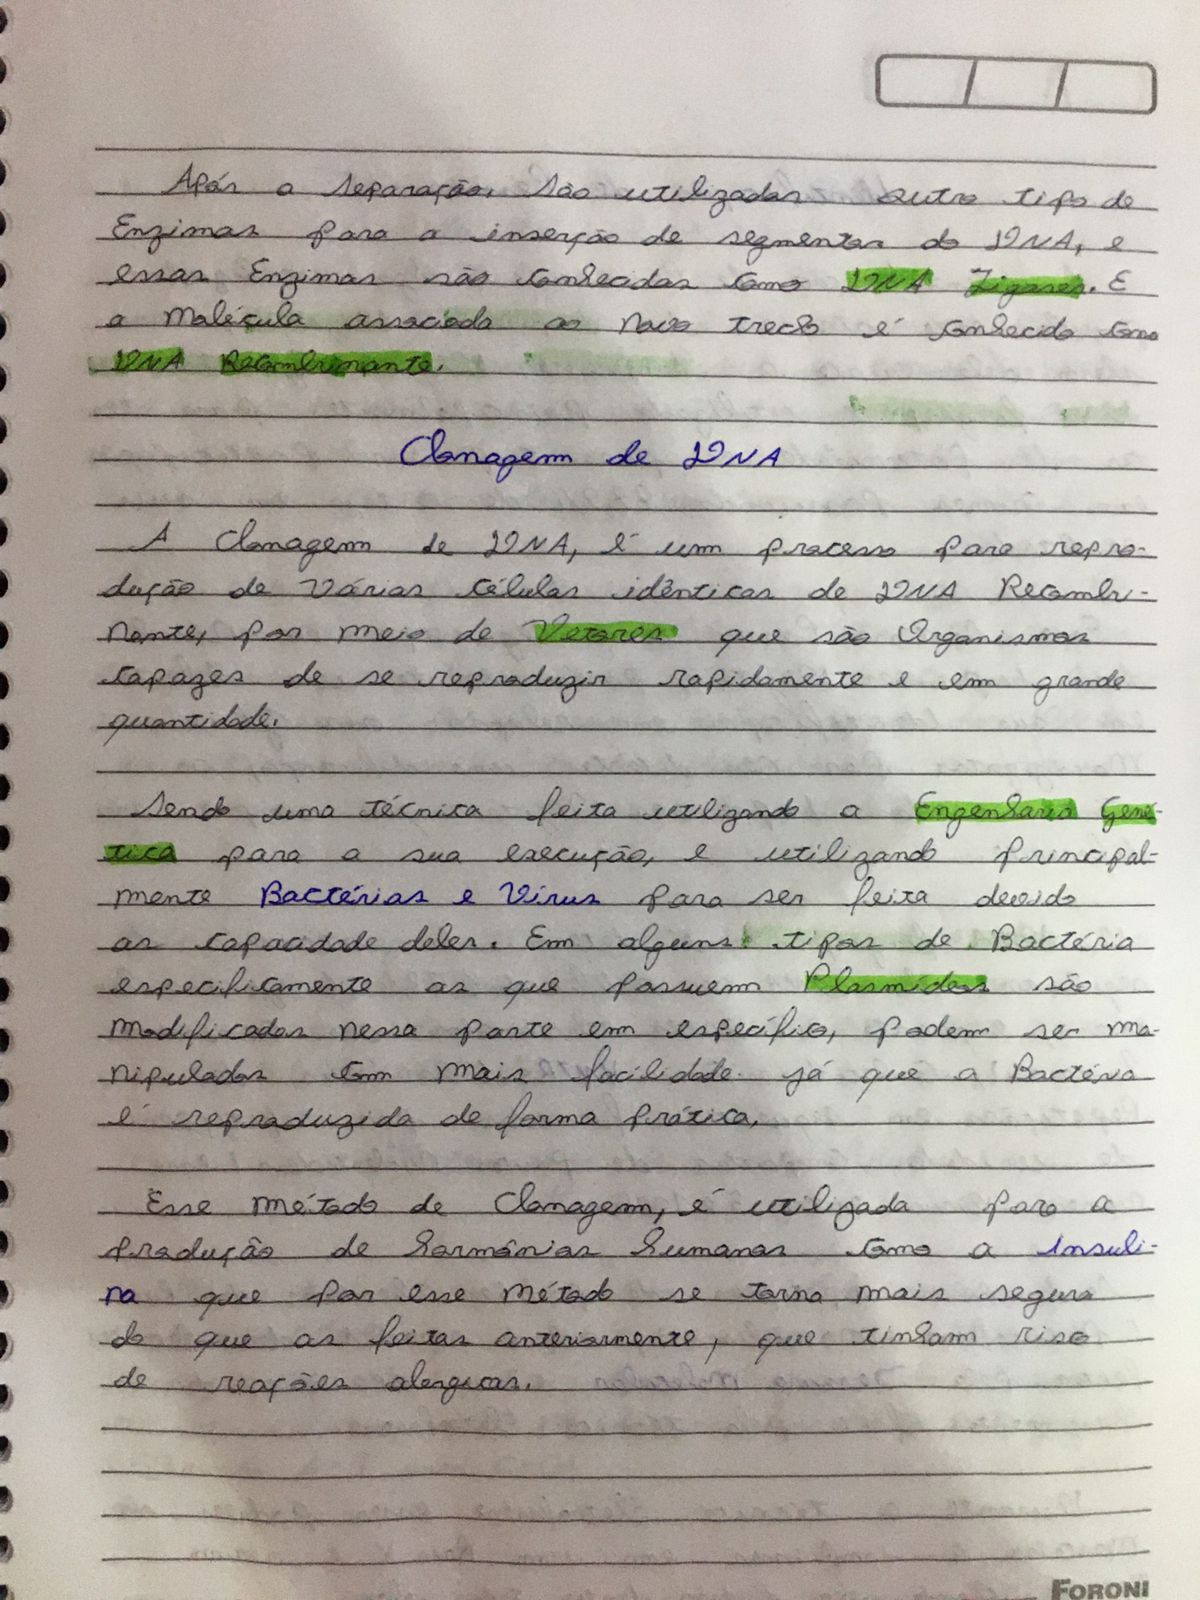 Após a separação, são utilizadas outro tipo de
Enzimas para a inserção de segmentos do DNA, e
essas Enzimas são conhecidas como DNA Ligases. E
a molécula associada ao novo trecho é conhecido como
DNA Recombinante.
Clonagem de DNA
A Clonagem de DNA, é um processo para repro-
dução de Várias células idênticas de DNA Recombi-
nante, por meio de Vetores que são Organismos
capazes de se reproduzir rapidamente e em grande
quantidade.
Sendo uma técnica feita utilizando a Engenharia Gené-
tica para a sua execução, e utilizando principal-
mente Bactérias e Vírus para ser feita devido
as capacidade deles. Em alguns tipos de Bactéria
especificamente as que possuem Plasmídeos são
modificados nessa parte em específico, podem ser ma-
nipulados com mais facilidade já que a Bactéria
é reproduzida de forma prática.
Esse método de Clonagem, é utilizada para a
produção de hormônias humanas como a insuli-
na que por esse método se torna mais segura
do que as feitas anteriormente, que tinham risco
de reações alergicas.
FORONI